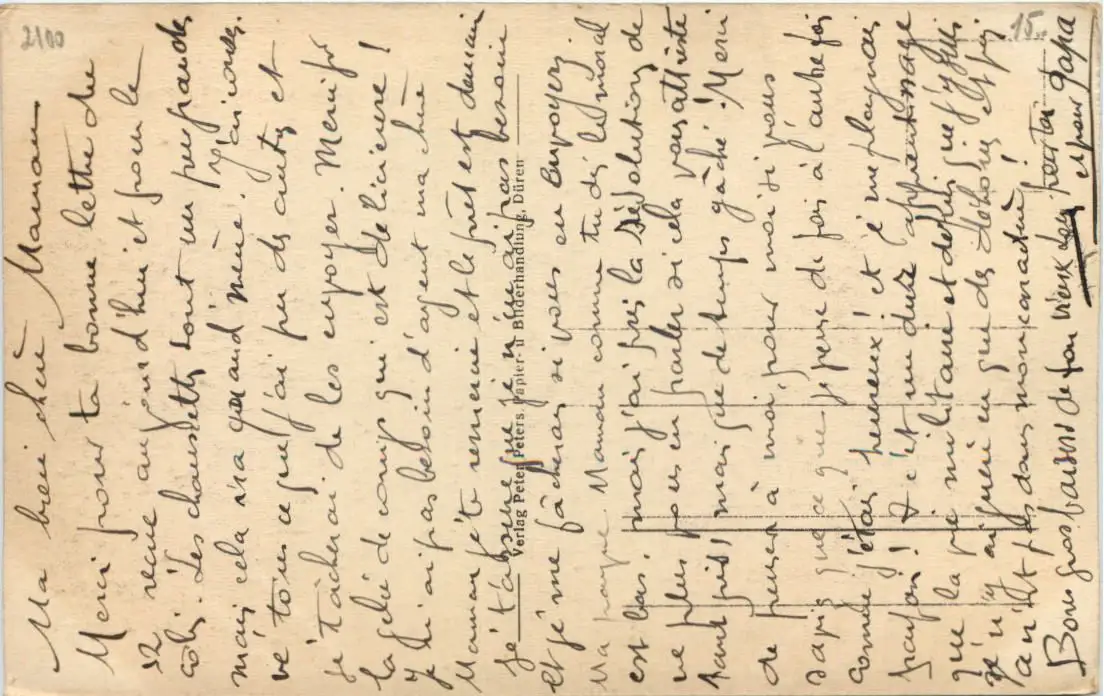 2100
15.
Ma bien chère Maman
Merci pour ta bonne lettre du
22 reçue aujourd'hui et pour le
colis. Les chaussettes sont un peu grandes
mais cela ira quand même. J'ai
tous ce que j'ai peu des autres et
je tâcherai de les envoyer. Merci pr
la gelée de coings qui est délicieuse!
Je n'ai pas besoin d'argent ma chère
Maman je te remercie et le prêt est demain
je t'assure que je n'en ai pas besoin
et je me fâcherais si vous en envoyez.
Ma Maman comme tu dis le moral
est bas. mais j'ai pris la résolution de
ne plus vous en parler si cela vous attriste
tant pis, mais que de temps gâché! Merci
de penser à moi, pour moi si vous
saviez que ce que je pense de fois à l'autre fois
comme j'étais heureux! et je me plaignais
parfois! c'est un dur apprentissage
que la vie militaire et depuis que j'y suis
je n'y ai guère eu que des déboires et
n'est pas dans mon caractère!
Bons gros baisers de ton vieux pour toi
et pour Papa
Verlag Peter Peters, Papier- u Bilderhandlung, Düren